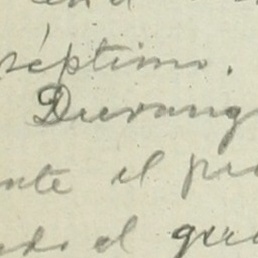 séptimo.
Durang
nte el pr
do el gu